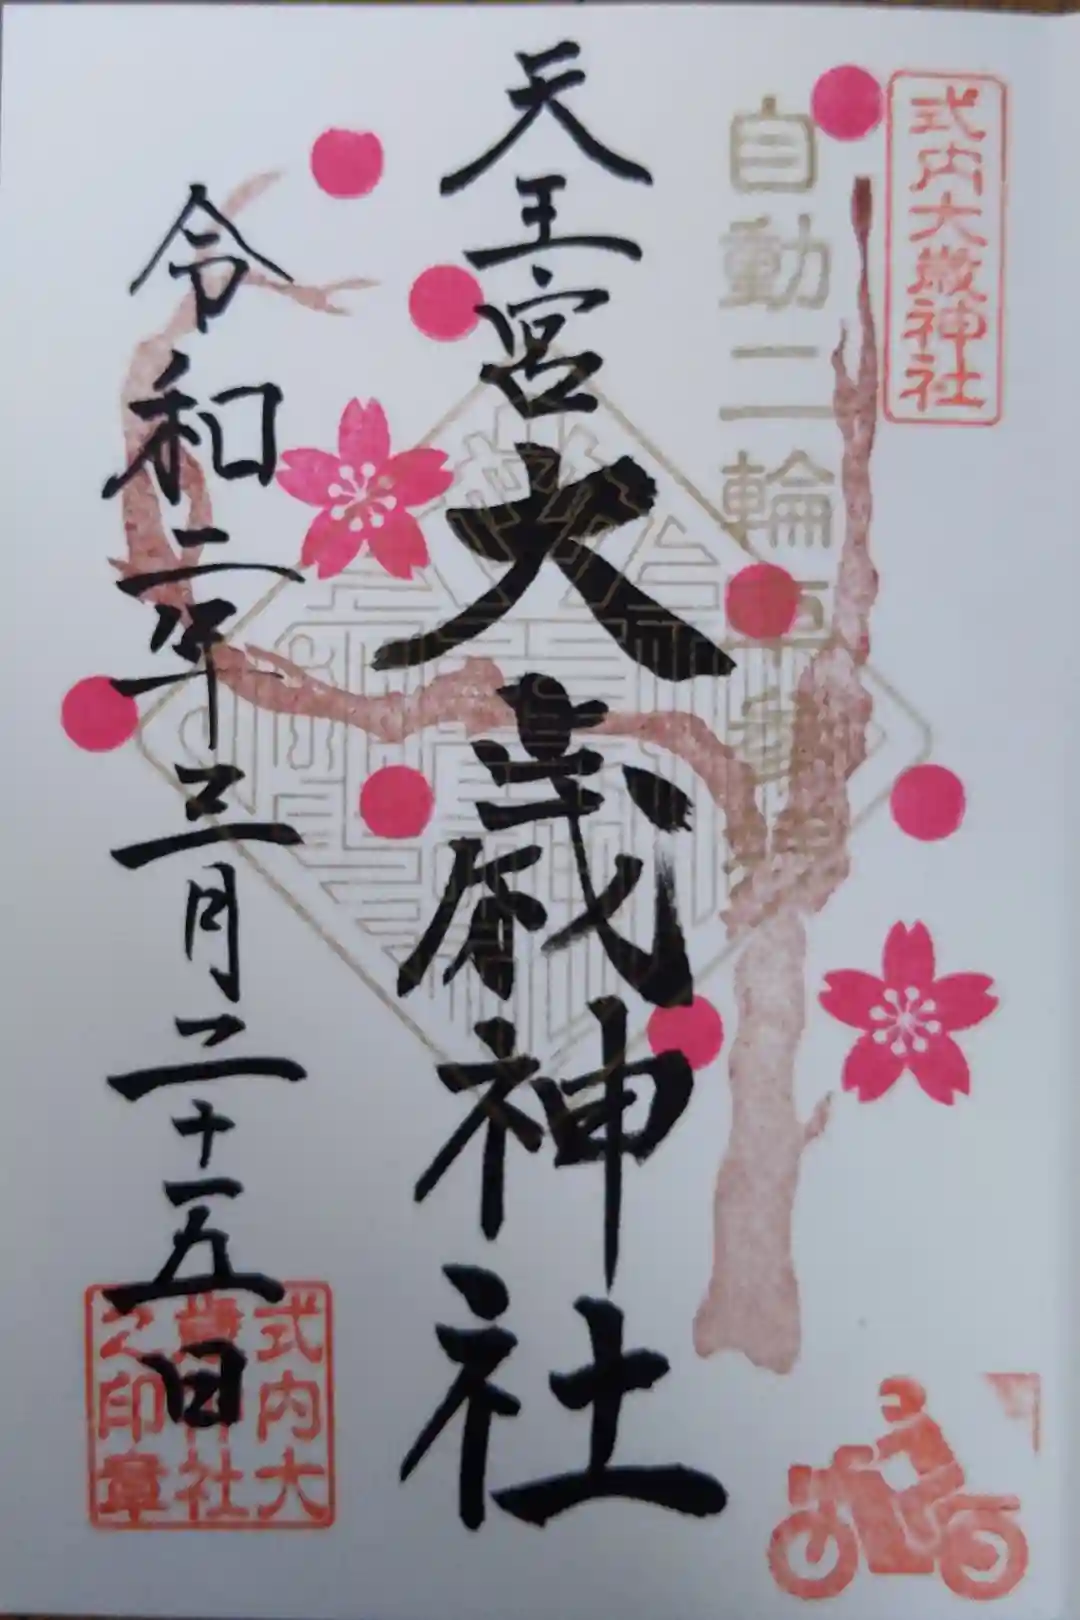 式内大歳神社
自動二輪車参拝
天王宮大歳神社
令和二年三月二十五日
式内大
歳神社
之印章